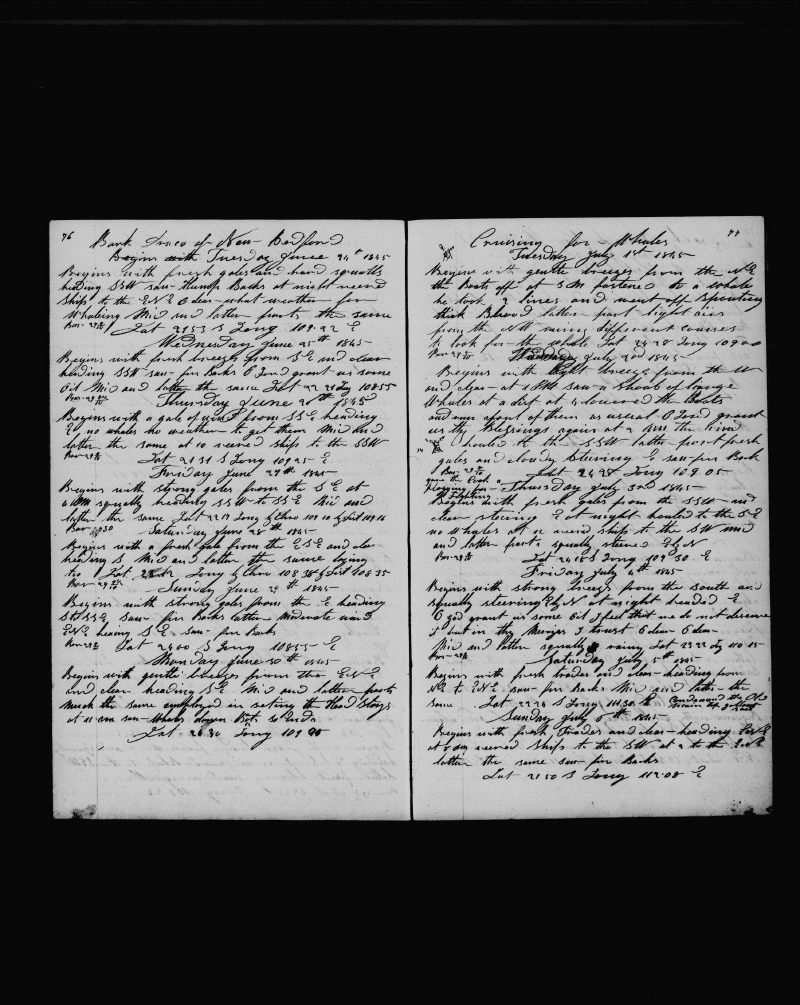 76
Bark Draco of New Bedford
Begins with Tuesday June 24th 1845
Begins with fresh gales and hard squalls
heading SSW saw Hump Backs at night weared
Ships to the ENE O dear what weather for
Whaleing Mid and latter parts the same
Lat 21 53 S Long 109.22 E
Wednesday June 25th 1845
Begins with fresh breezes from S E and clear
heading SSW saw fin Backs O Lord grant us some
Oil Mid and latter the same Lat 22 21 Lg 108 55
Thursday June 26th 1845
Begins with a gale of wind from SSE heading
E no whales no weather to get them Mid and
latter the same at 10 weared ships to the SSW
Lat 21 31 S Long 109 25 E
Friday June 27th 1845
Begins with strong gales from the S E at
6 PM squally heading SSW to SSE Mid and
latter the same Lat 22 17 Long by Chro 109 10 by 109 16
Saturday June 28th 1845
Begins with a fresh gale from the ESE and clear
heading S Mid and latter the same lying
too Lat Long by Chro 108 38 by 108 35
Sunday June 29th 1845
Begins with strong gales from the E heading
S to SSE saw fin Backs latter Moderate wind
ENE heading S E saw fin Backs
Lat 24 00 S Long 108 55 E
Monday June 30th 1845
Begins with gentle breezes from the ENE
and clear heading S E Mid and latter parts
much the same employed in seting the Head Stays
at 11 am saw Whales down Bots
Lat 24 34 Long 109 00
77
Cruising for Whales
Tuesday July 1st 1845
Begins with gentle breezes from the N E
the Boats off at 3 PM fastened to a whale
he took 2 lines and went off Spouting
thick Blood latter part light airs
from the NW runing different courses
to look for the whale Lat 24 28 Long 109 00
Wednesday July 2nd 1845
Begins with light breeze from the W
and clear at 1 PM saw a Shoal of large
Whales at a dist at 2 lowered the Boats
and run afoul of them as usual O Lord grant
us thy Blessings again at 2 am the wind
hauled to the SSW latter part fresh
gales and cloudy Stering E saw fin Back
Lat 24 28 Long 109 05
gave the Cook a
floging for
Fighting
Thursday July 3rd 1845
Begins with fresh gales from the SSW and
clear steering E at night hauled to the S E
no Whales at 12 weared Ships to the SW mid
and latter parts squally steered E by N
Lat 24 18 S Long 109 30 E
Friday July 4th 1845
Begins with strong breezes from the South and
squally steering E by N at night headed E
O god grant us some Oil I feel that we do not deserve
it but in thy Mercies I trust O dear O dear
Mid and latter squally rainy Lat 23 22 Lg 110 15
Saturday July 5th 1845
Begins with fresh trades and clear heading from
NE to ENE saw fin Backs Mid and latter the
same Lat 22 24 S Long 111 30 E
Condemned the Old
Sunday July 6th 1845
Begins with fresh Trades and clear heading
at 6 pm weared Ships to the SW at 2 to the ENE
latter the same saw fin Backs
Lat 21 50 S Long 112.08 E